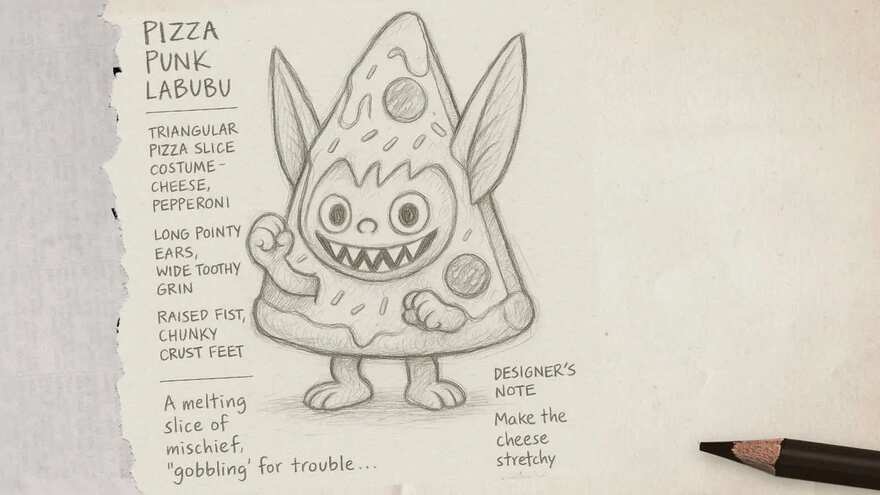 PIZZA
PUNK
LABUBU
TRIANGULAR
PIZZA SLICE
COSTUME–
CHEESE,
PEPPERONI
LONG POINTY
EARS,
WIDE TOOTHY
GRIN
RAISED FIST,
CHUNKY
CRUST FEET
A melting
slice of
mischief,
"gobbling' for trouble...
DESIGNER'S
NOTE
Make the
cheese
stretchy